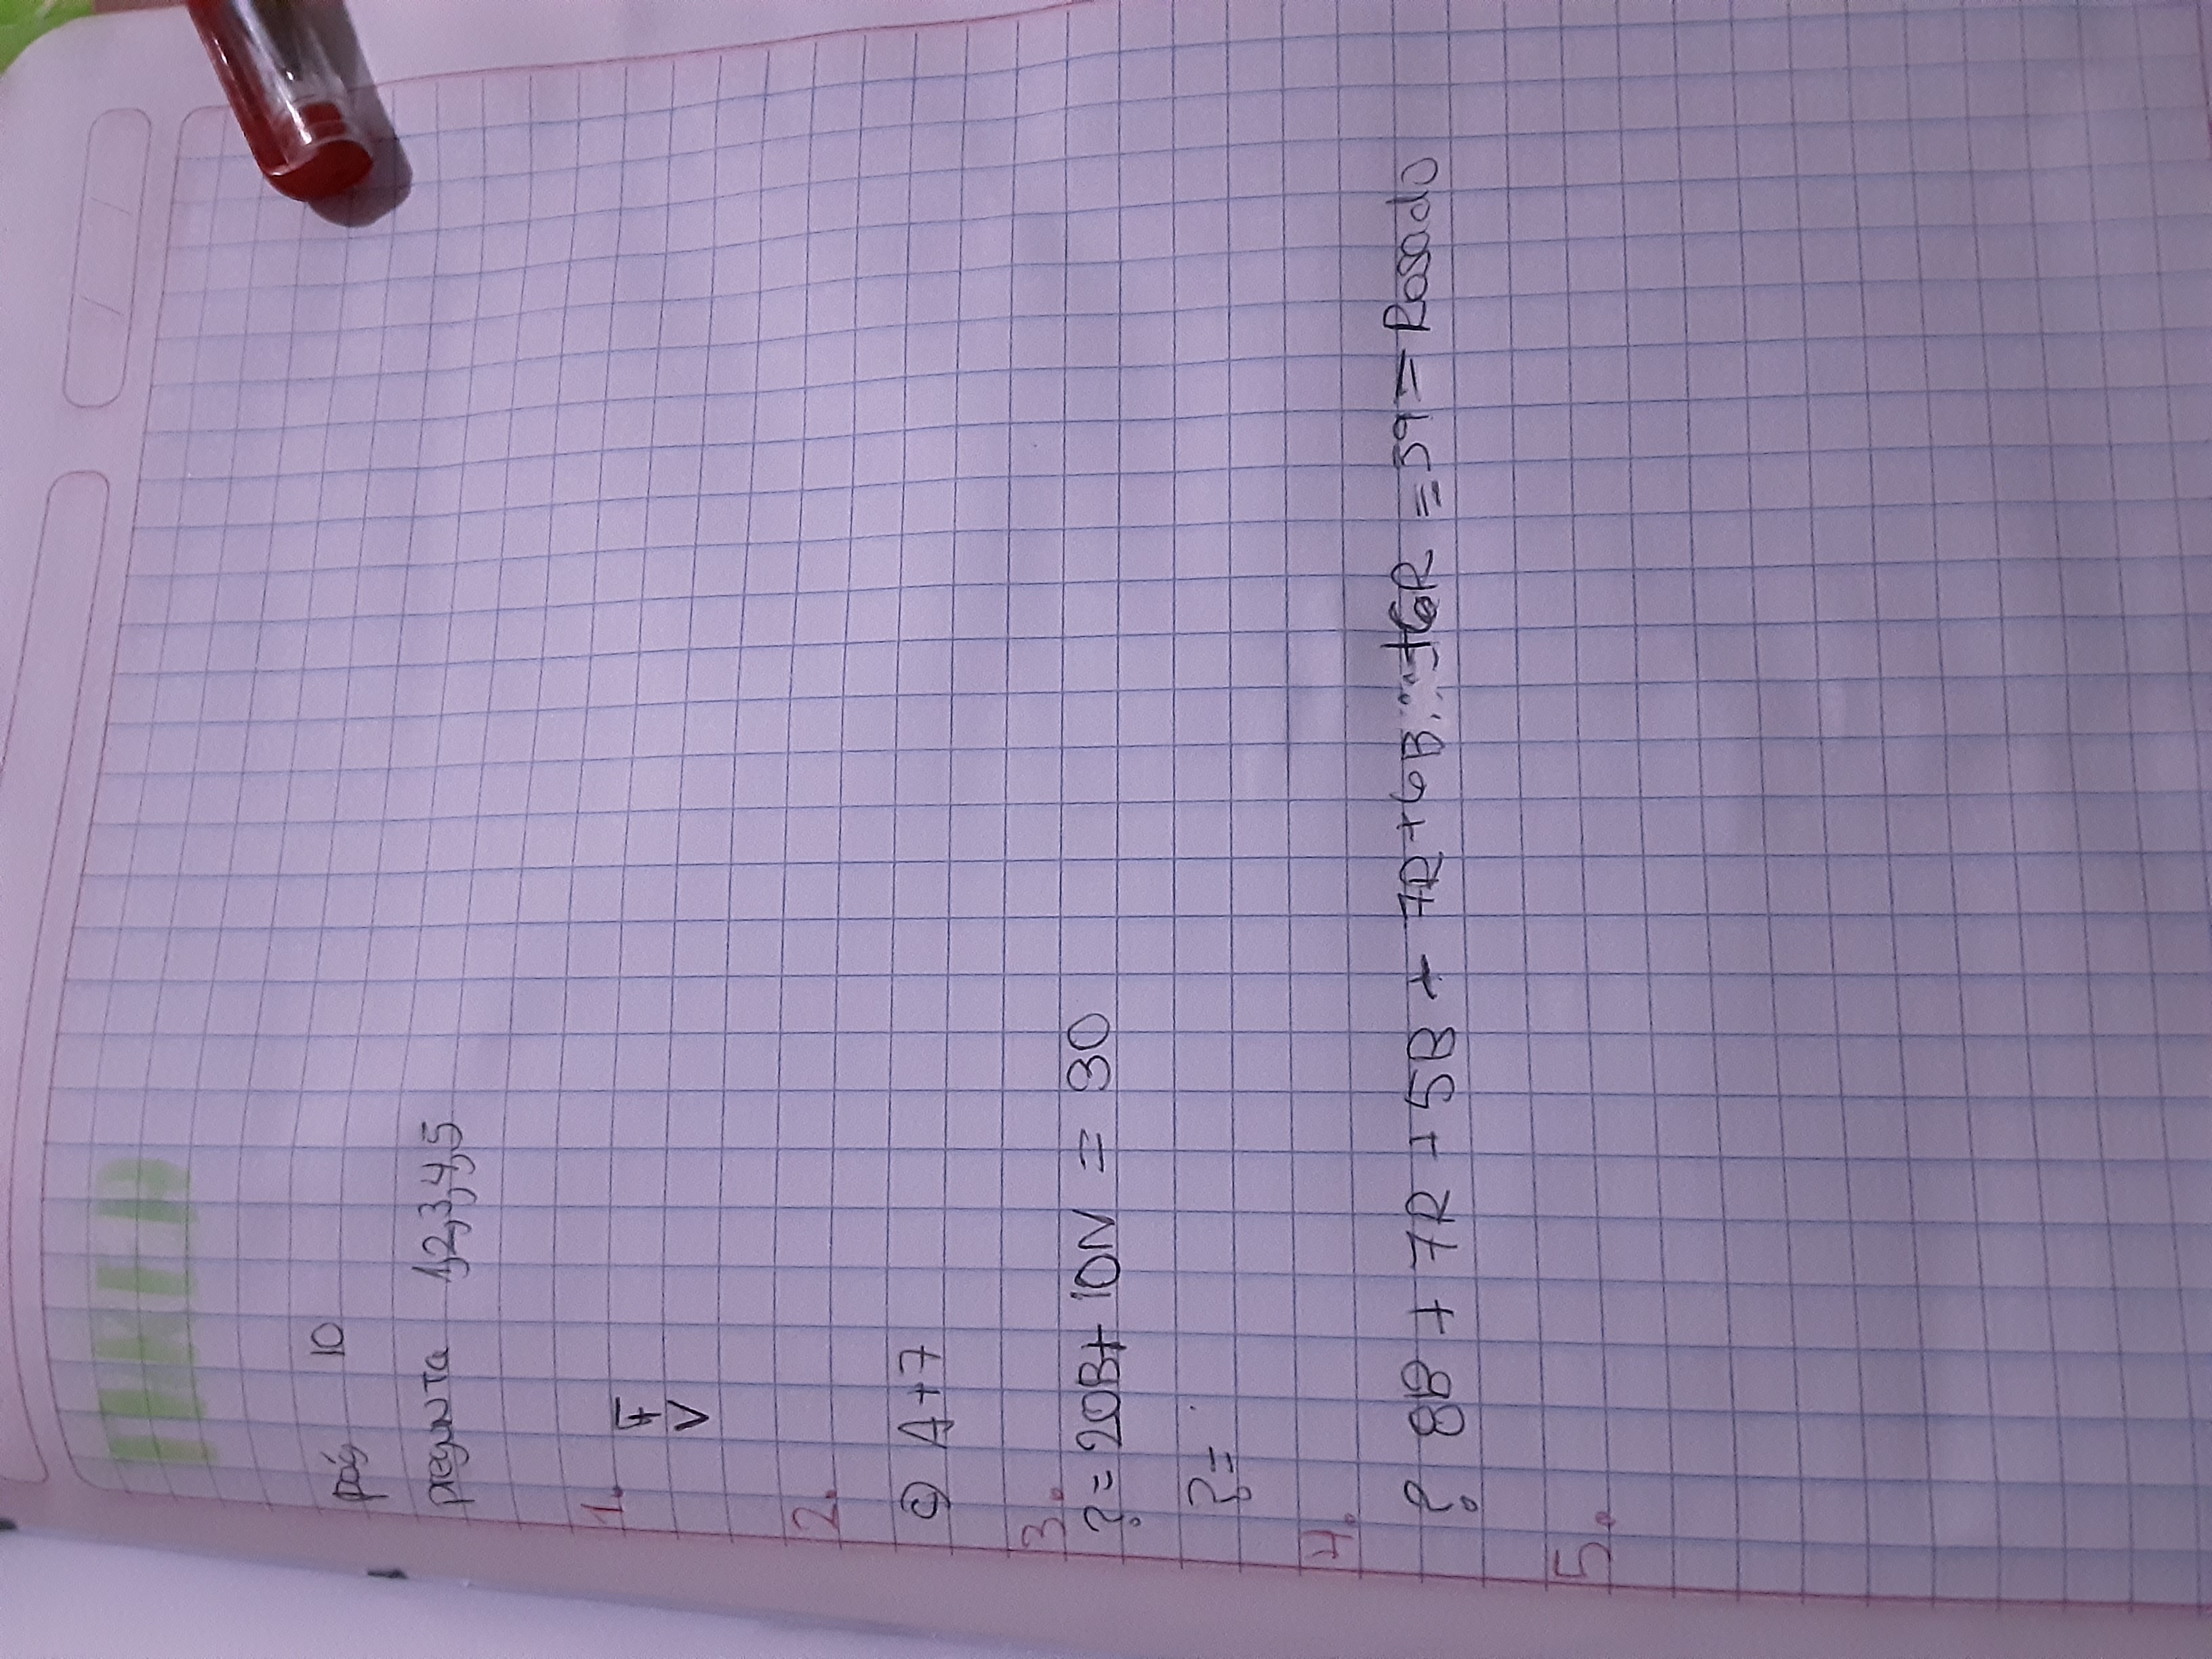 TAREA
pág 10
pregunta 1,2,3,4,5
1.
F
V
2.
c) A+7
3.
?= 20B+ 10N = 30
?=
4.
? 8B + 7R + 5B + 7R + 6B + 6R = 39 = Rosado
5.